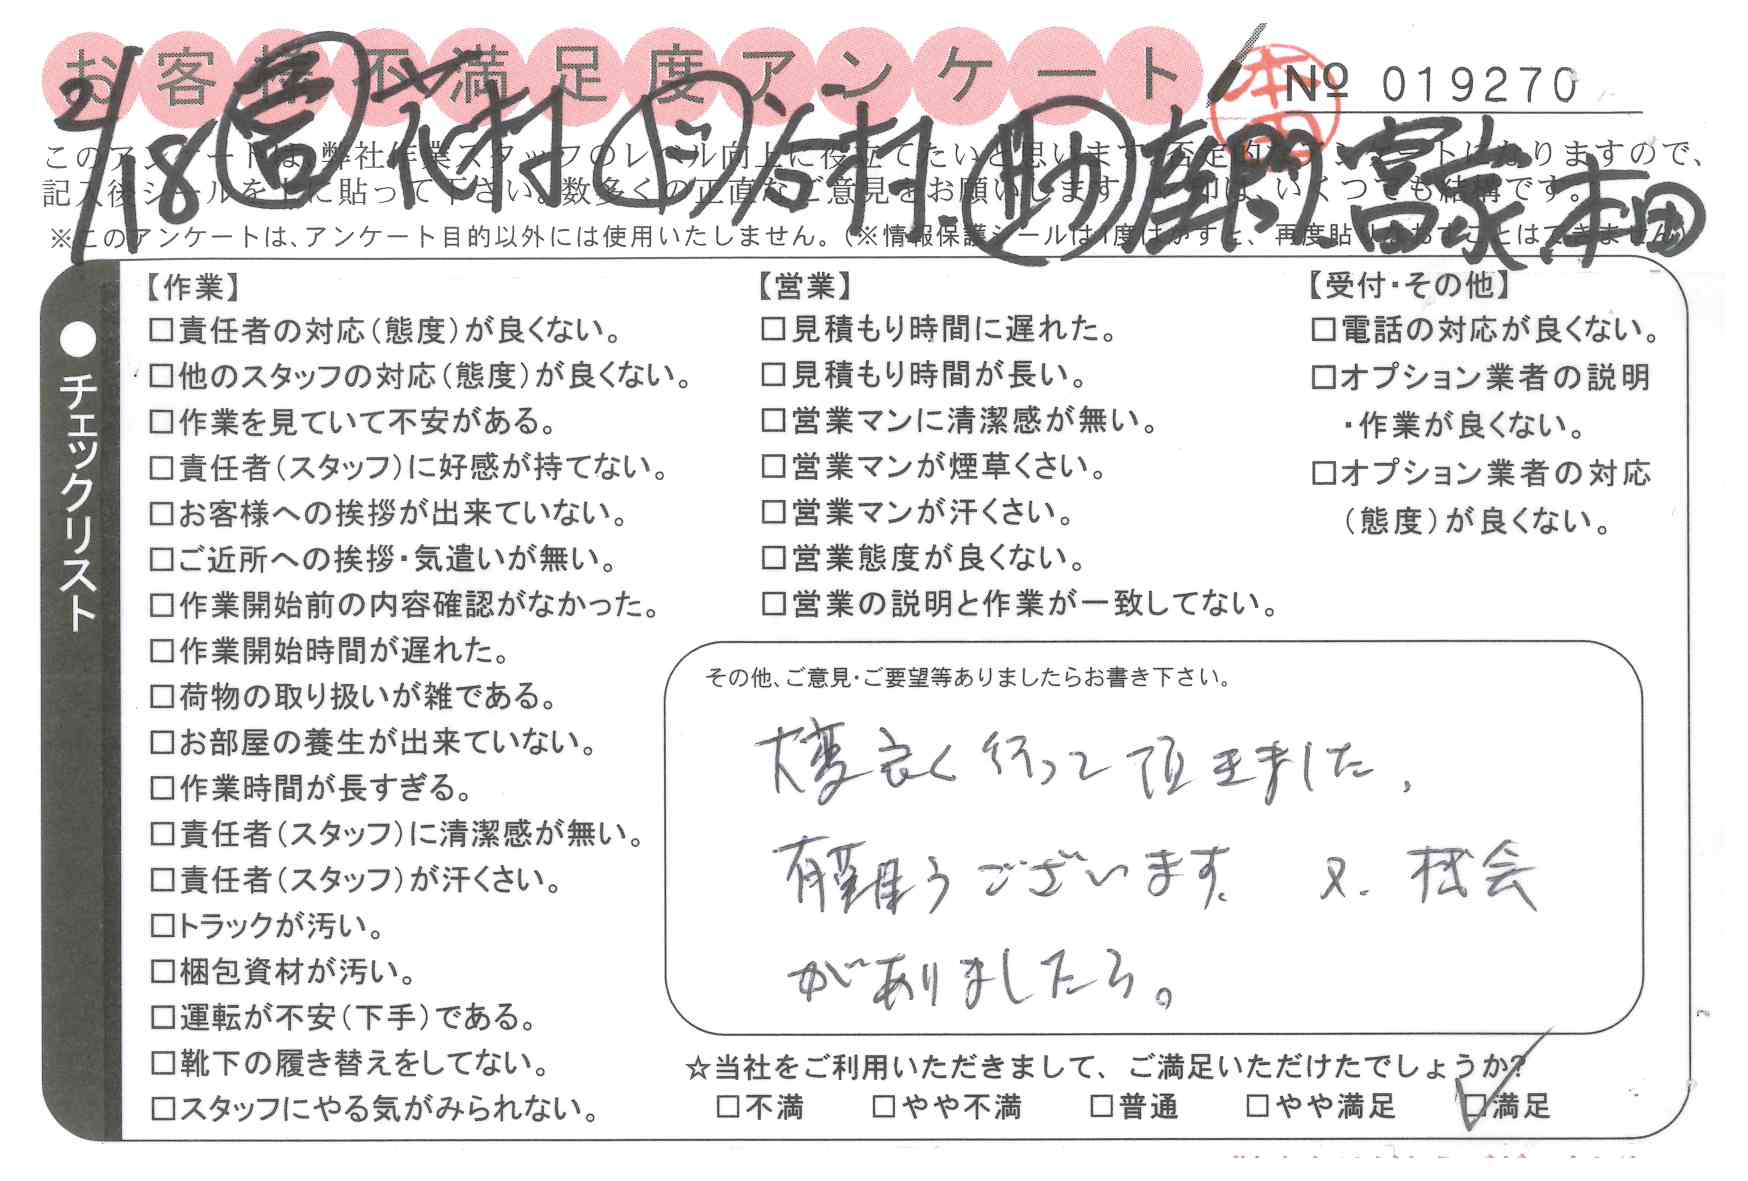 お客様不満足度アンケート
本田
№ 019270
2/18 営 花村 ド 谷村. 助 富家. 本田
このアンケートは、弊社作業スタッフのレベル向上に役立てたいと思います。否定的なアンケートになりますので、
記入後シールを上に貼って下さい。数多くの正直なご意見をお願いします。
いくつでも結構です。
※このアンケートは、アンケート目的以外には使用いたしません。(※情報保護シールは1度はがすと、再度貼りなおすことはできません)
●チェックリスト
【作業】
□責任者の対応(態度)が良くない。
□他のスタッフの対応(態度)が良くない。
□作業を見ていて不安がある。
□責任者(スタッフ)に好感が持てない。
□お客様への挨拶が出来ていない。
□ご近所への挨拶・気遣いが無い。
□作業開始前の内容確認がなかった。
□作業開始時間が遅れた。
□荷物の取り扱いが雑である。
□お部屋の養生が出来ていない。
□作業時間が長すぎる。
□責任者(スタッフ)に清潔感が無い。
□責任者(スタッフ)が汗くさい。
□トラックが汚い。
□梱包資材が汚い。
□運転が不安(下手)である。
□靴下の履き替えをしてない。
□スタッフにやる気がみられない。
【営業】
□見積もり時間に遅れた。
□見積もり時間が長い。
□営業マンに清潔感が無い。
□営業マンが煙草くさい。
□営業マンが汗くさい。
□営業態度が良くない。
□営業の説明と作業が一致してない。
【受付・その他】
□電話の対応が良くない。
□オプション業者の説明
・作業が良くない。
□オプション業者の対応
(態度)が良くない。
その他、ご意見・ご要望等ありましたらお書き下さい。
大変良く行って頂きました、
有難うございます。又、機会
がありましたら。
☆当社をご利用いただきまして、ご満足いただけたでしょうか?
□不満 □やや不満 □普通 □やや満足 ☑満足